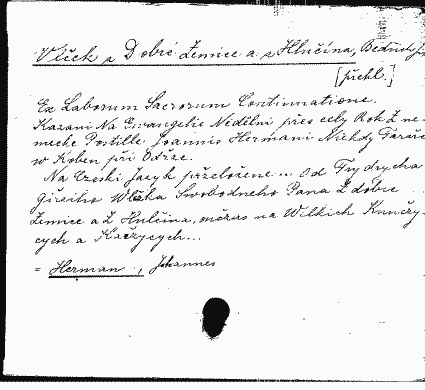 Vlček z Dobré Zemice a z Hlučína, Bedřich
[překl.]
Ex Laborum Sacrorum Continuatione.
Kazani Na Ewangelie Nedělni přes cely Rok Z ne-
mecke Postille Joannis Hermani Niekdy Faraře
w Koben při Odrze.
Na Czeski Jazyk přeložene... Od Frydrycha
Giřiho Wlčka Swobodneho Pana Z dobre
Zemice a Z Hulčina, na Welkich Kunčy-
cych a Kačzycych...
= Herman, Johannes